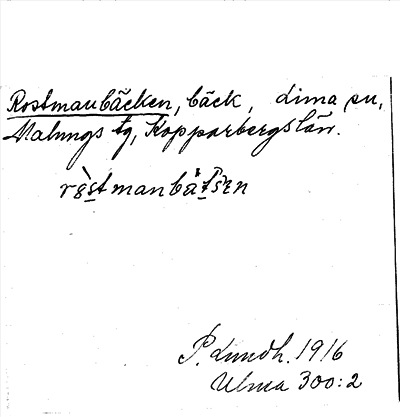 Rostmanbäcken, bäck, Lima sn,
Malungs tg, Kopparbergs län.
P. Lindh. 1916
Ulma 300:2